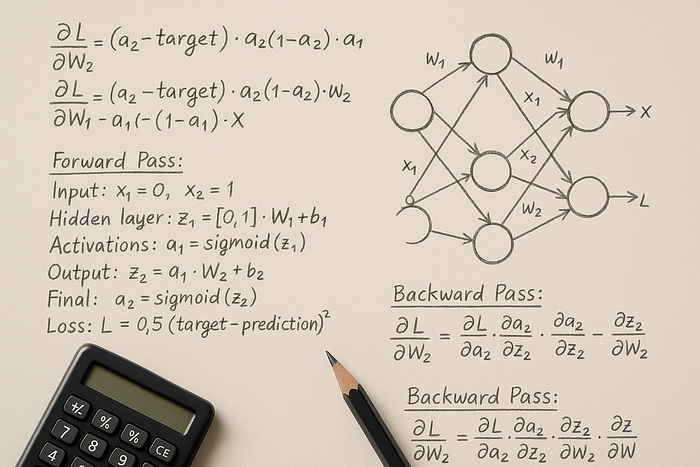 ∂L/∂W₂ = (a₂ – target) · a₂(1–a₂) · a₁
∂L/∂W₁ = (a₂ – target) · a₂(1–a₂) · W₂
– a₁(–(1–a₁) · X
Forward Pass:
Input: x₁ = 0, x₂ = 1
Hidden layer: z₁ = [0,1] · W₁ + b₁
Activations: a₁ = sigmoid(z₁)
Output: z₂ = a₁ · W₂ + b₂
Final: a₂ = sigmoid(z₂)
Loss: L = 0,5 (target – prediction)²
W₁
W₁
X₁
X
X₁
X₂
W₂
L
Backward Pass:
∂L/∂W₂ = ∂L/∂a₂ · ∂a₂/∂z₂ · ∂a₂/∂z₂ – ∂z₂/∂W₂
Backward Pass:
∂L/∂W₂ = ∂L/∂a₂ · ∂a₂/∂z₂ · ∂z₂/∂W₂ · ∂z/∂W
+/-
%
%
CE
7
8
9
4